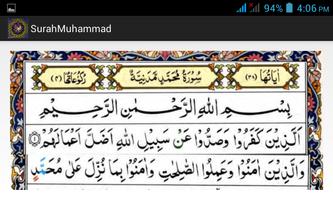 94% 4:06 PM
SurahMuhammad
اٰيَاتُهَا (٣٨) سُوْرَةُ مُحَمَّدٍ مَّدَنِيَّةٌ (٤) رُكُوْعَاتُهَا
بِسْمِ اللّٰهِ الرَّحْمٰنِ الرَّحِيْمِ
اَلَّذِيْنَ كَفَرُوْا وَصَدُّوْا عَنْ سَبِيْلِ اللّٰهِ اَضَلَّ اَعْمَالَهُمْ ①
وَالَّذِيْنَ اٰمَنُوْا وَعَمِلُوا الصّٰلِحٰتِ وَاٰمَنُوْا بِمَا نُزِّلَ عَلٰى مُحَمَّدٍ